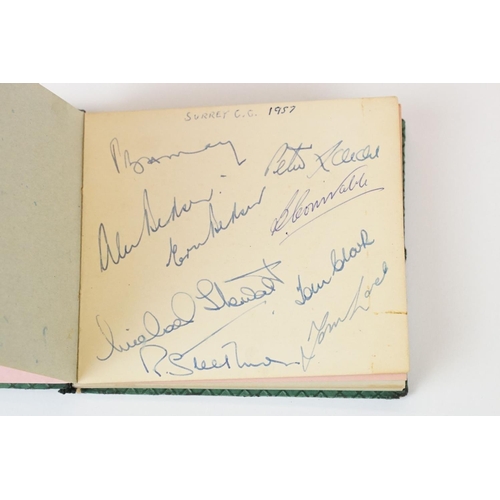 SURREY C.C. 1957
Peter Loader
B. Constable
Alec Bedser
Eric Bedser
Michael Stewart
Tom Clark
Tony Lock